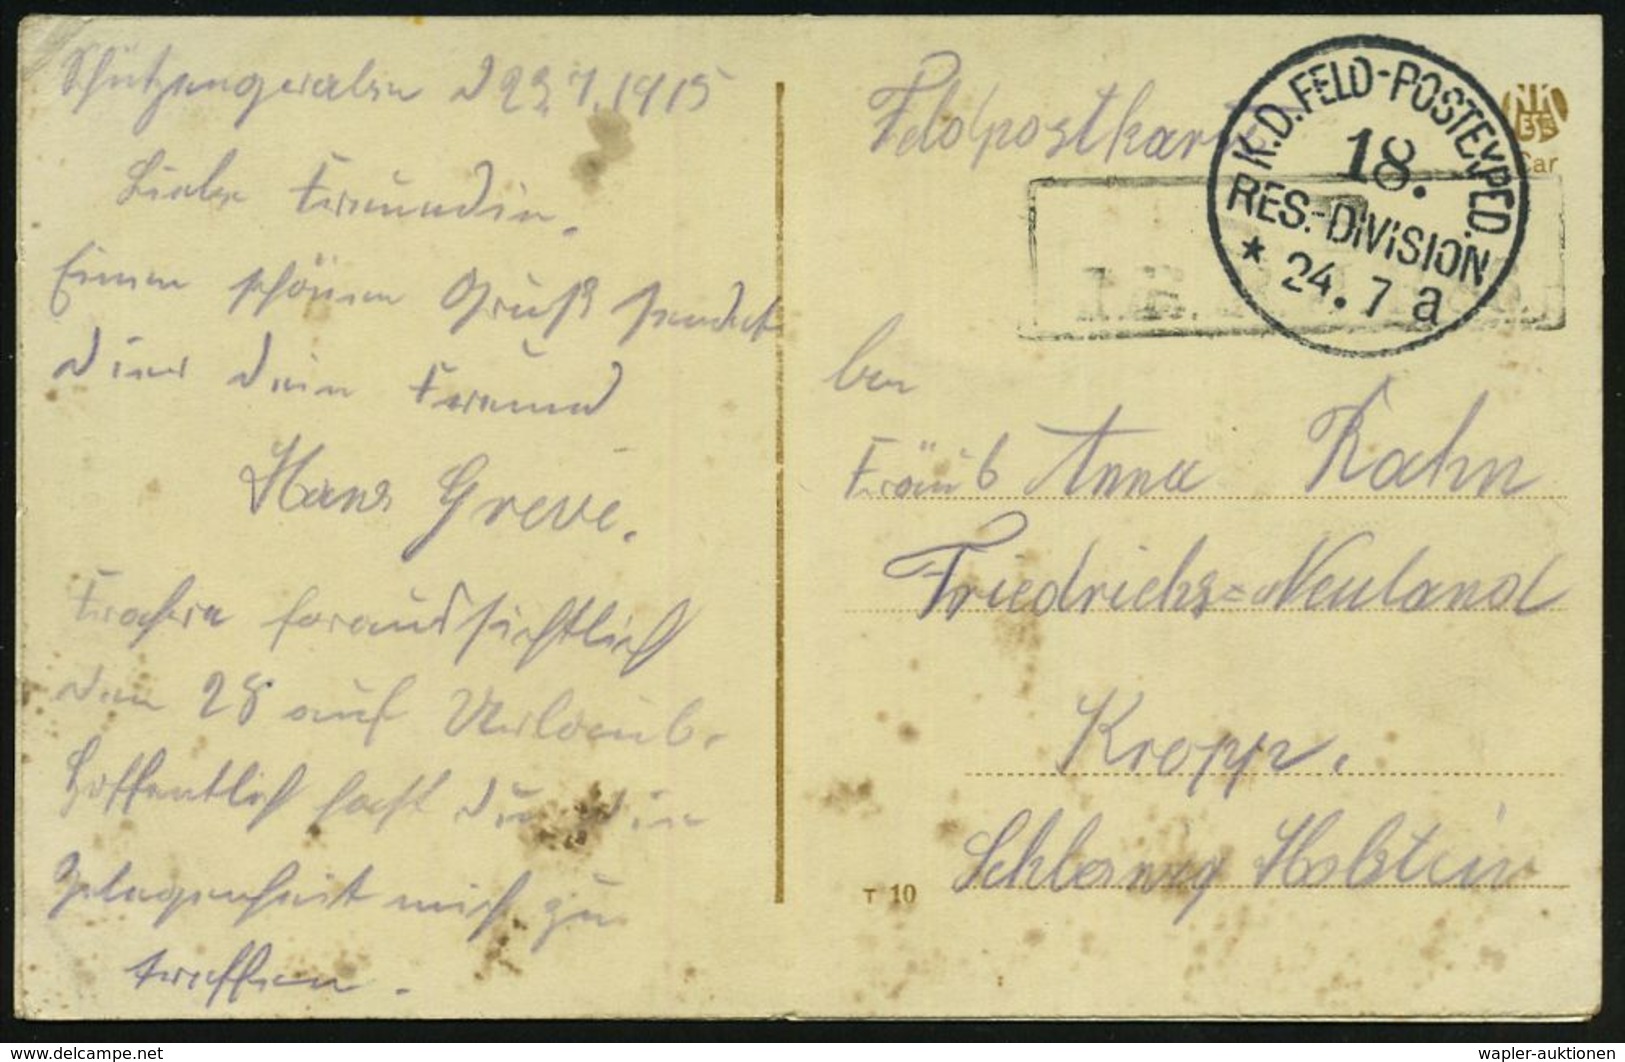 Schützengraben d 23.7.1915
Liebe Freundin.
Einen schönen Gruß sendet
Dier dein Freund
Hans Greve.
Fahre foraussichtlich
den 28 auf Uerlaub.
Hoffentlich hast du die
Gelegenheit mich zu
treffen.
Feldpostkarte
K.D. FELD-POSTEXPED.
18.
RES.-DIVISION
* 24. 7 a
NK
Car
Anna Kahn
Friedrichs=Neuland
Kropp.
Schleswig Holstein
T 10
www.delcampe.net
wapler-auktionen